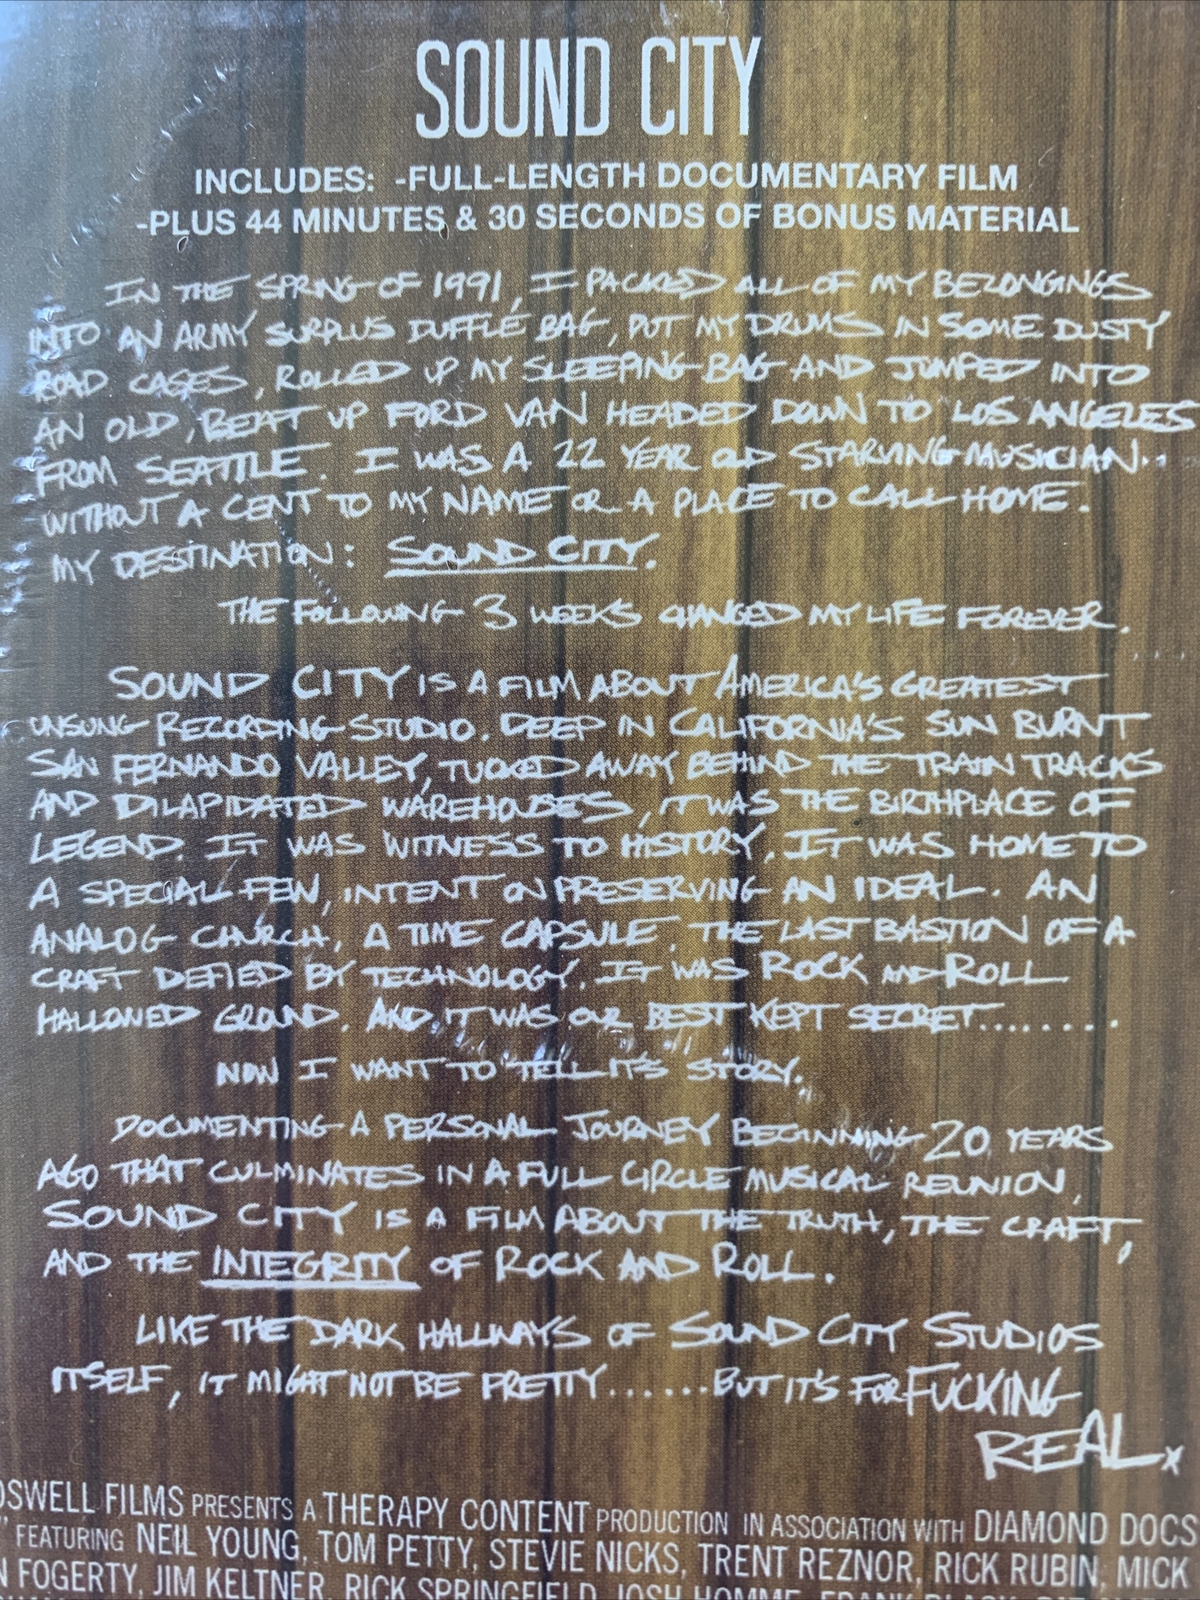 SOUND CITY
INCLUDES: -FULL-LENGTH DOCUMENTARY FILM
-PLUS 44 MINUTES & 30 SECONDS OF BONUS MATERIAL
IN THE SPRING OF 1991, I PACKED ALL OF MY BELONGINGS
INTO AN ARMY SURPLUS DUFFLE BAG, PUT MY DRUMS IN SOME DUSTY
ROAD CASES, ROLLED UP MY SLEEPING BAG AND JUMPED INTO
AN OLD, BEAT UP FORD VAN HEADED DOWN TO LOS ANGELES
FROM SEATTLE. I WAS A 22 YEAR OLD STARVING MUSICIAN..
WITHOUT A CENT TO MY NAME OR A PLACE TO CALL HOME.
MY DESTINATION: SOUND CITY.
THE FOLLOWING 3 WEEKS CHANGED MY LIFE FOREVER.
SOUND CITY IS A FILM ABOUT AMERICA'S GREATEST
UNSUNG RECORDING STUDIO. DEEP IN CALIFORNIA'S SUN BURNT
SAN FERNANDO VALLEY, TUCKED AWAY BEHIND THE TRAIN TRACKS
AND DILAPIDATED WAREHOUSES, IT WAS THE BIRTHPLACE OF
LEGEND. IT WAS WITNESS TO HISTORY. IT WAS HOME TO
A SPECIAL FEW, INTENT ON PRESERVING AN IDEAL. AN
ANALOG CHURCH. A TIME CAPSULE. THE LAST BASTION OF A
CRAFT DEFIED BY TECHNOLOGY. IT WAS ROCK AND ROLL
HALLOWED GROUND. AND IT WAS OUR BEST KEPT SECRET........
NOW I WANT TO TELL IT'S STORY.
DOCUMENTING A PERSONAL JOURNEY BEGINNING 20 YEARS
AGO THAT CULMINATES IN A FULL CIRCLE MUSICAL REUNION,
SOUND CITY IS A FILM ABOUT THE TRUTH, THE CRAFT,
AND THE INTEGRITY OF ROCK AND ROLL.
LIKE THE DARK HALLWAYS OF SOUND CITY STUDIOS
ITSELF, IT MIGHT NOT BE PRETTY.......BUT IT'S FOR FUCKING
REAL.x
OSWELL FILMS PRESENTS A THERAPY CONTENT PRODUCTION IN ASSOCIATION WITH DIAMOND DOCS
" FEATURING NEIL YOUNG, TOM PETTY, STEVIE NICKS, TRENT REZNOR, RICK RUBIN, MICK
N FOGERTY, JIM KELTNER, RICK SPRINGFIELD, JOSH HOMME, FRANK BLACK,